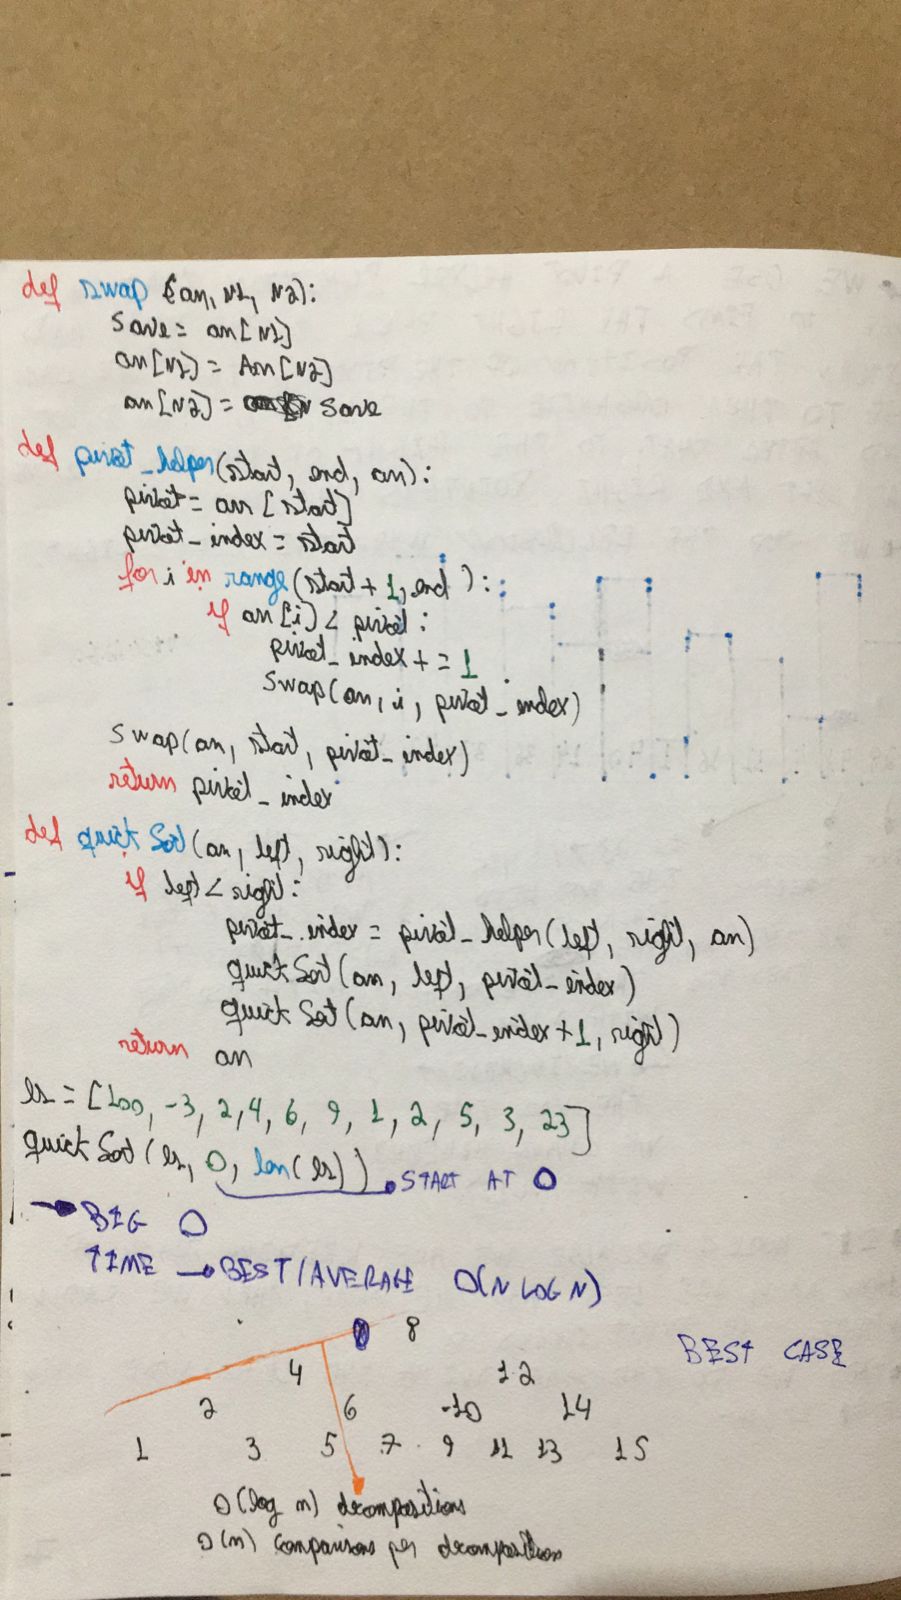 def swap (arr, N1, N2):
save = arr[N1]
arr[N1] = Arr[N2]
arr[N2] = save
def pivot_helper(start, end, arr):
pivot = arr[start]
pivot_index = start
for i in range(start + 1, end):
if arr[i] < pivot:
pivot_index += 1
swap(arr, i, pivot_index)
swap(arr, start, pivot_index)
return pivot_index
def quick Sort(arr, left, right):
if left < right:
pivot_index = pivot_helper(left, right, arr)
quick Sort(arr, left, pivot_index)
quick Sort(arr, pivot_index + 1, right)
return arr
ls = [100, -3, 2, 4, 6, 9, 1, 2, 5, 3, 23]
quick Sort(ls, 0, len(ls)) START AT 0
BIG O
TIME → BEST/AVERAGE O(N LOG N)
8
BEST CASE
4 12
2 6 -10 14
1 3 5 7 9 11 13 15
O(log n) decompositions
O(n) comparisons per decomposition